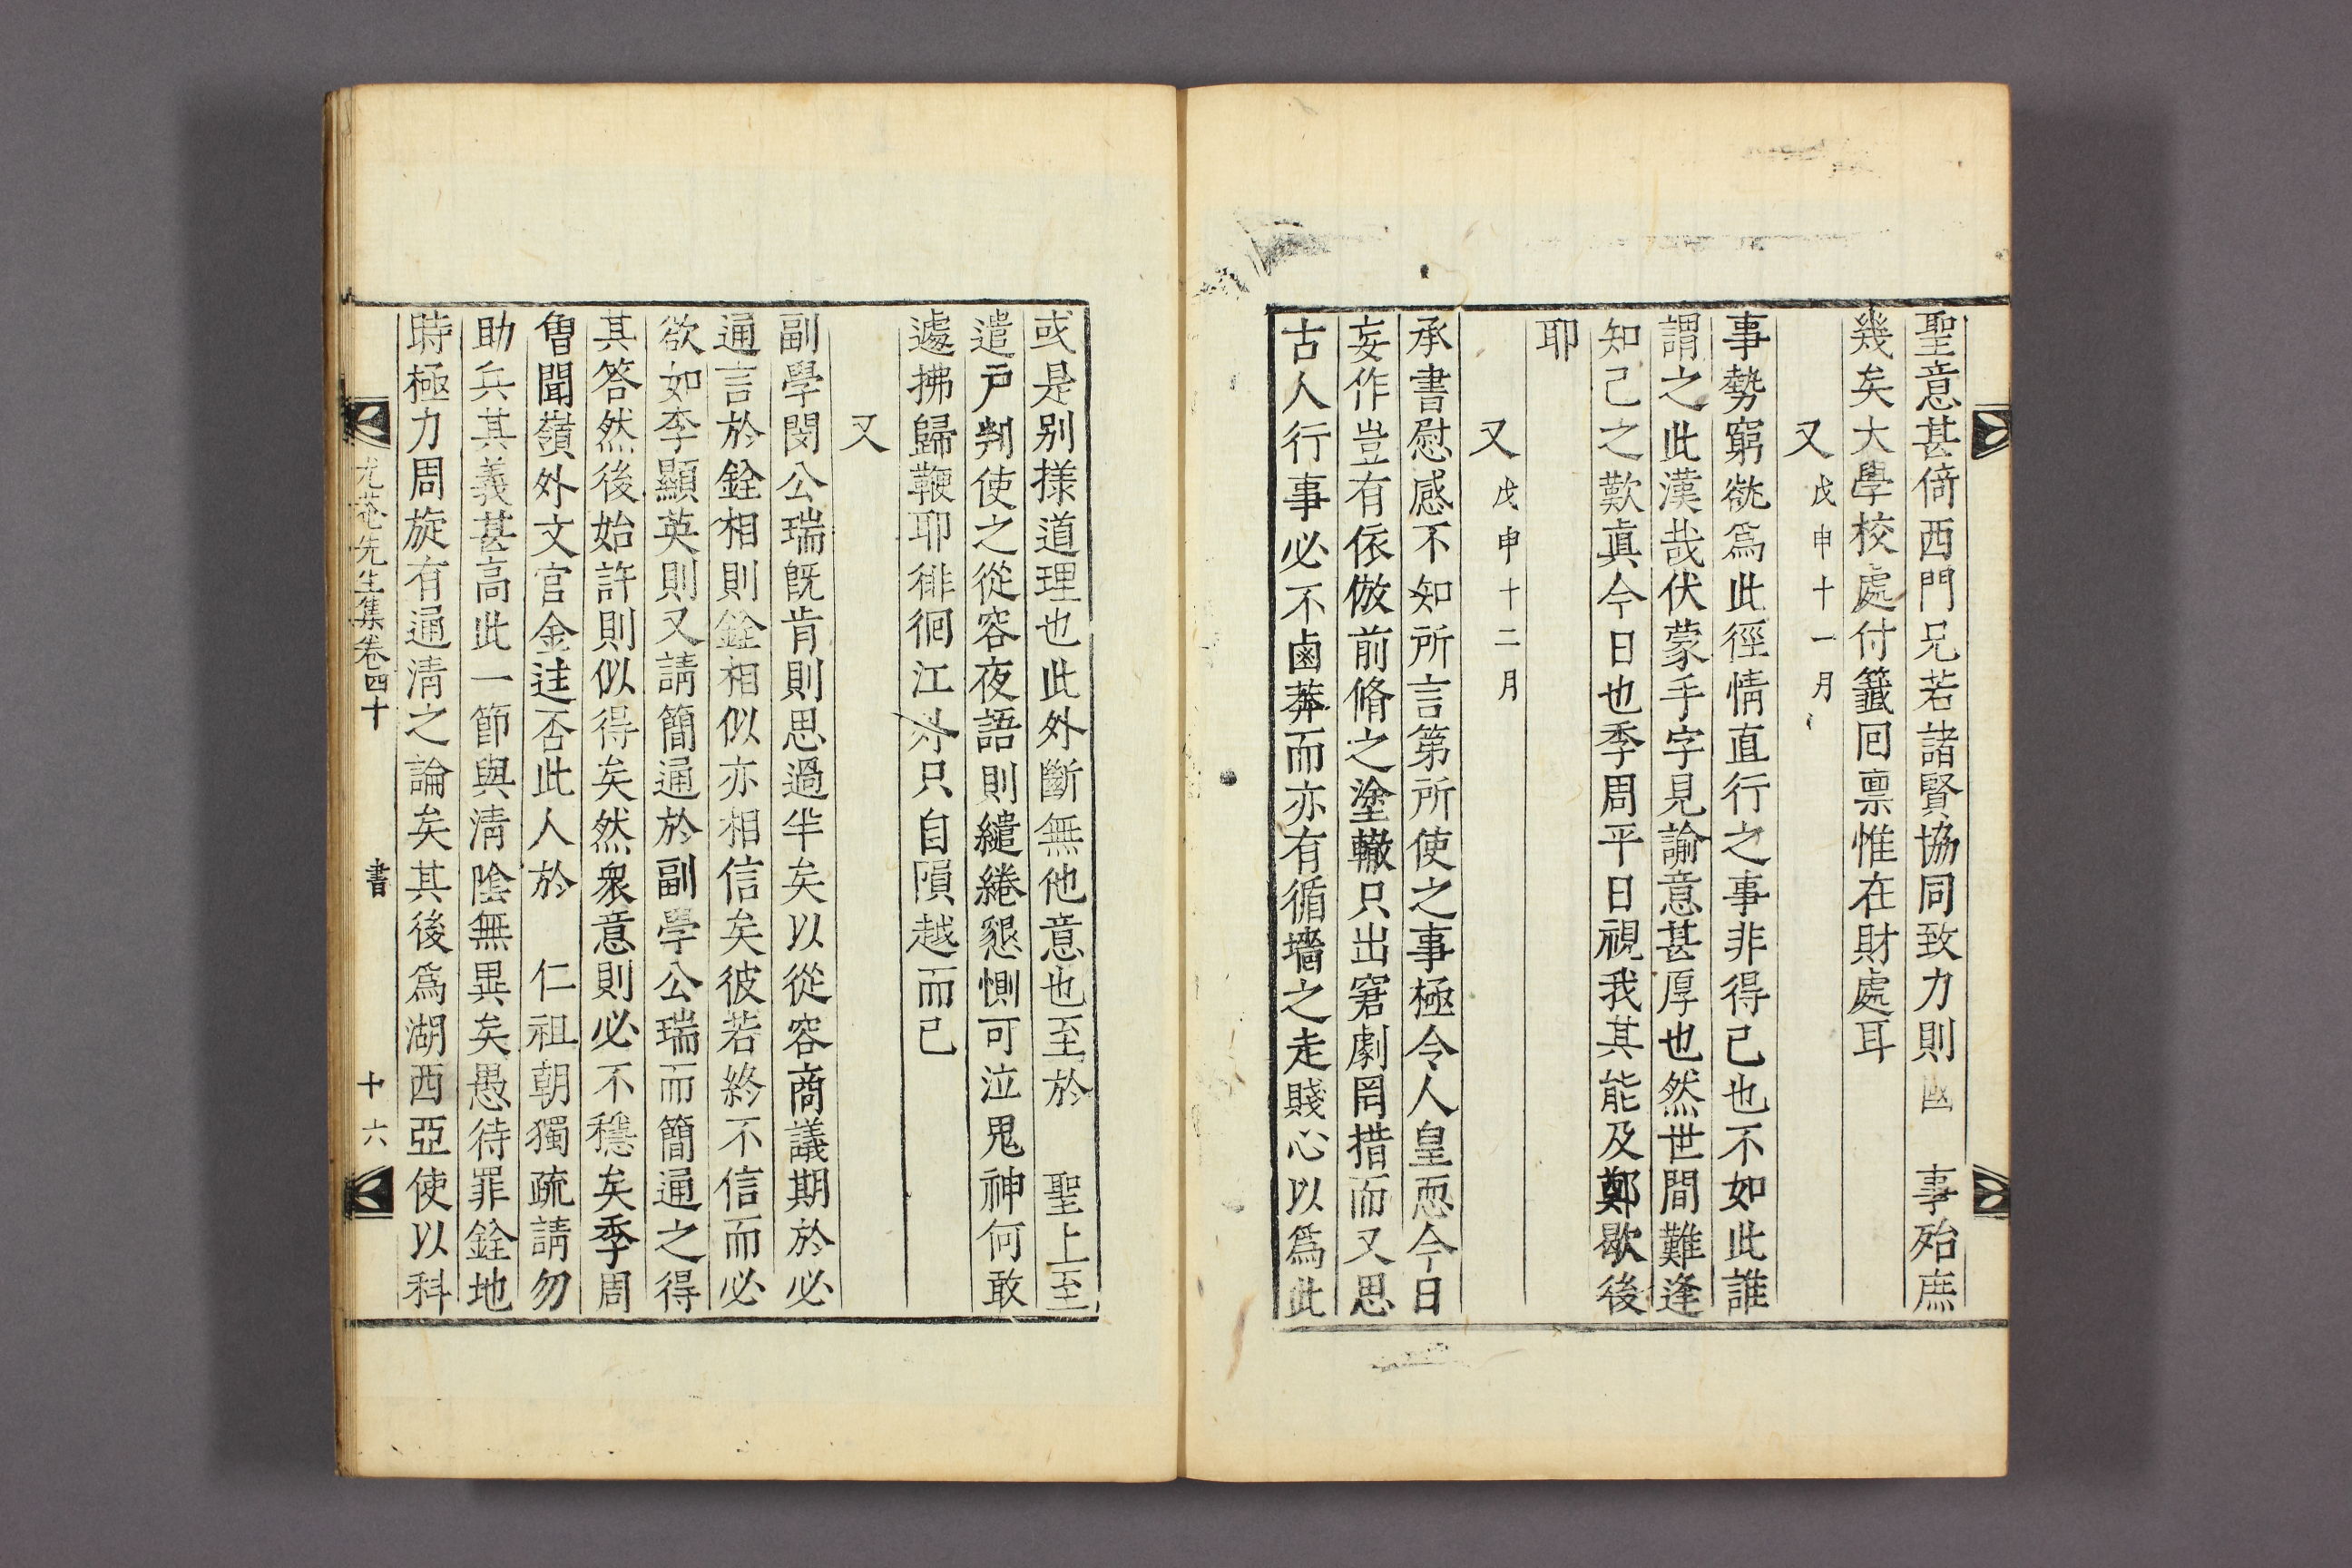 聖意甚倚西門兄若諸賢協同致力則國　事殆庶
幾矣大學校處付籤回稟惟在財處耳
又戊申十一月
事勢窮蹙爲此徑情直行之事非得已也不如此誰
謂之此漢哉伏蒙手字見諭意甚厚也然世間難逢
知己之歎眞今日也季周平日視我其能及鄭歇後
耶
又戊申十二月
承書慰感不知所言第所使之事極令人皇恧今日
妄作豈有依倣前脩之塗轍只出窘劇罔措而又思
古人行事必不鹵莽而亦有循墻之走賤心以爲此
或是別樣道理也此外斷無他意也至於　聖上至
遣戶判使之從容夜語則繾綣懇惻可泣鬼神何敢
遽拂歸鞭耶徘徊江外只自隕越而已
又
副學閔公瑞旣肯則思過半矣以從容商議期於必
通言於銓相則銓相似亦相信矣彼若終不信而必
欲如李顯英則又請簡通於副學公瑞而簡通之得
其答然後始許則似得矣然衆意則必不穩矣季周
曾聞嶺外文官金迬否此人於　仁祖朝獨疏請勿
助兵其義甚高此一節與淸陰無異矣愚待罪銓地
時極力周旋有通淸之論矣其後爲湖西亞使以科
尤菴先生集卷四十　書　十六